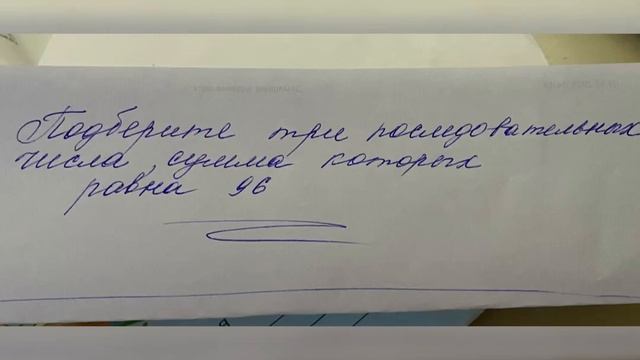 Подберите три последовательных
числа, сумма которых
равна 96